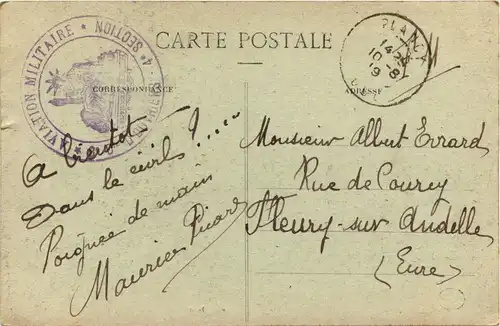 CARTE POSTALE
AVIATION MILITAIRE * 4e SECTION
CORRESPONDANCE
ADRESSE
14 25
10 -8
19
A bientot
Dans le civil ? !....
Poignée de main
Maurice Picard
Monsieur Albert Evrard
Rue de Courcy
Fleury-sur Andelle
(Eure)